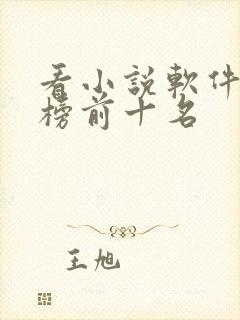 看小説軟件
榜前十名
王旭